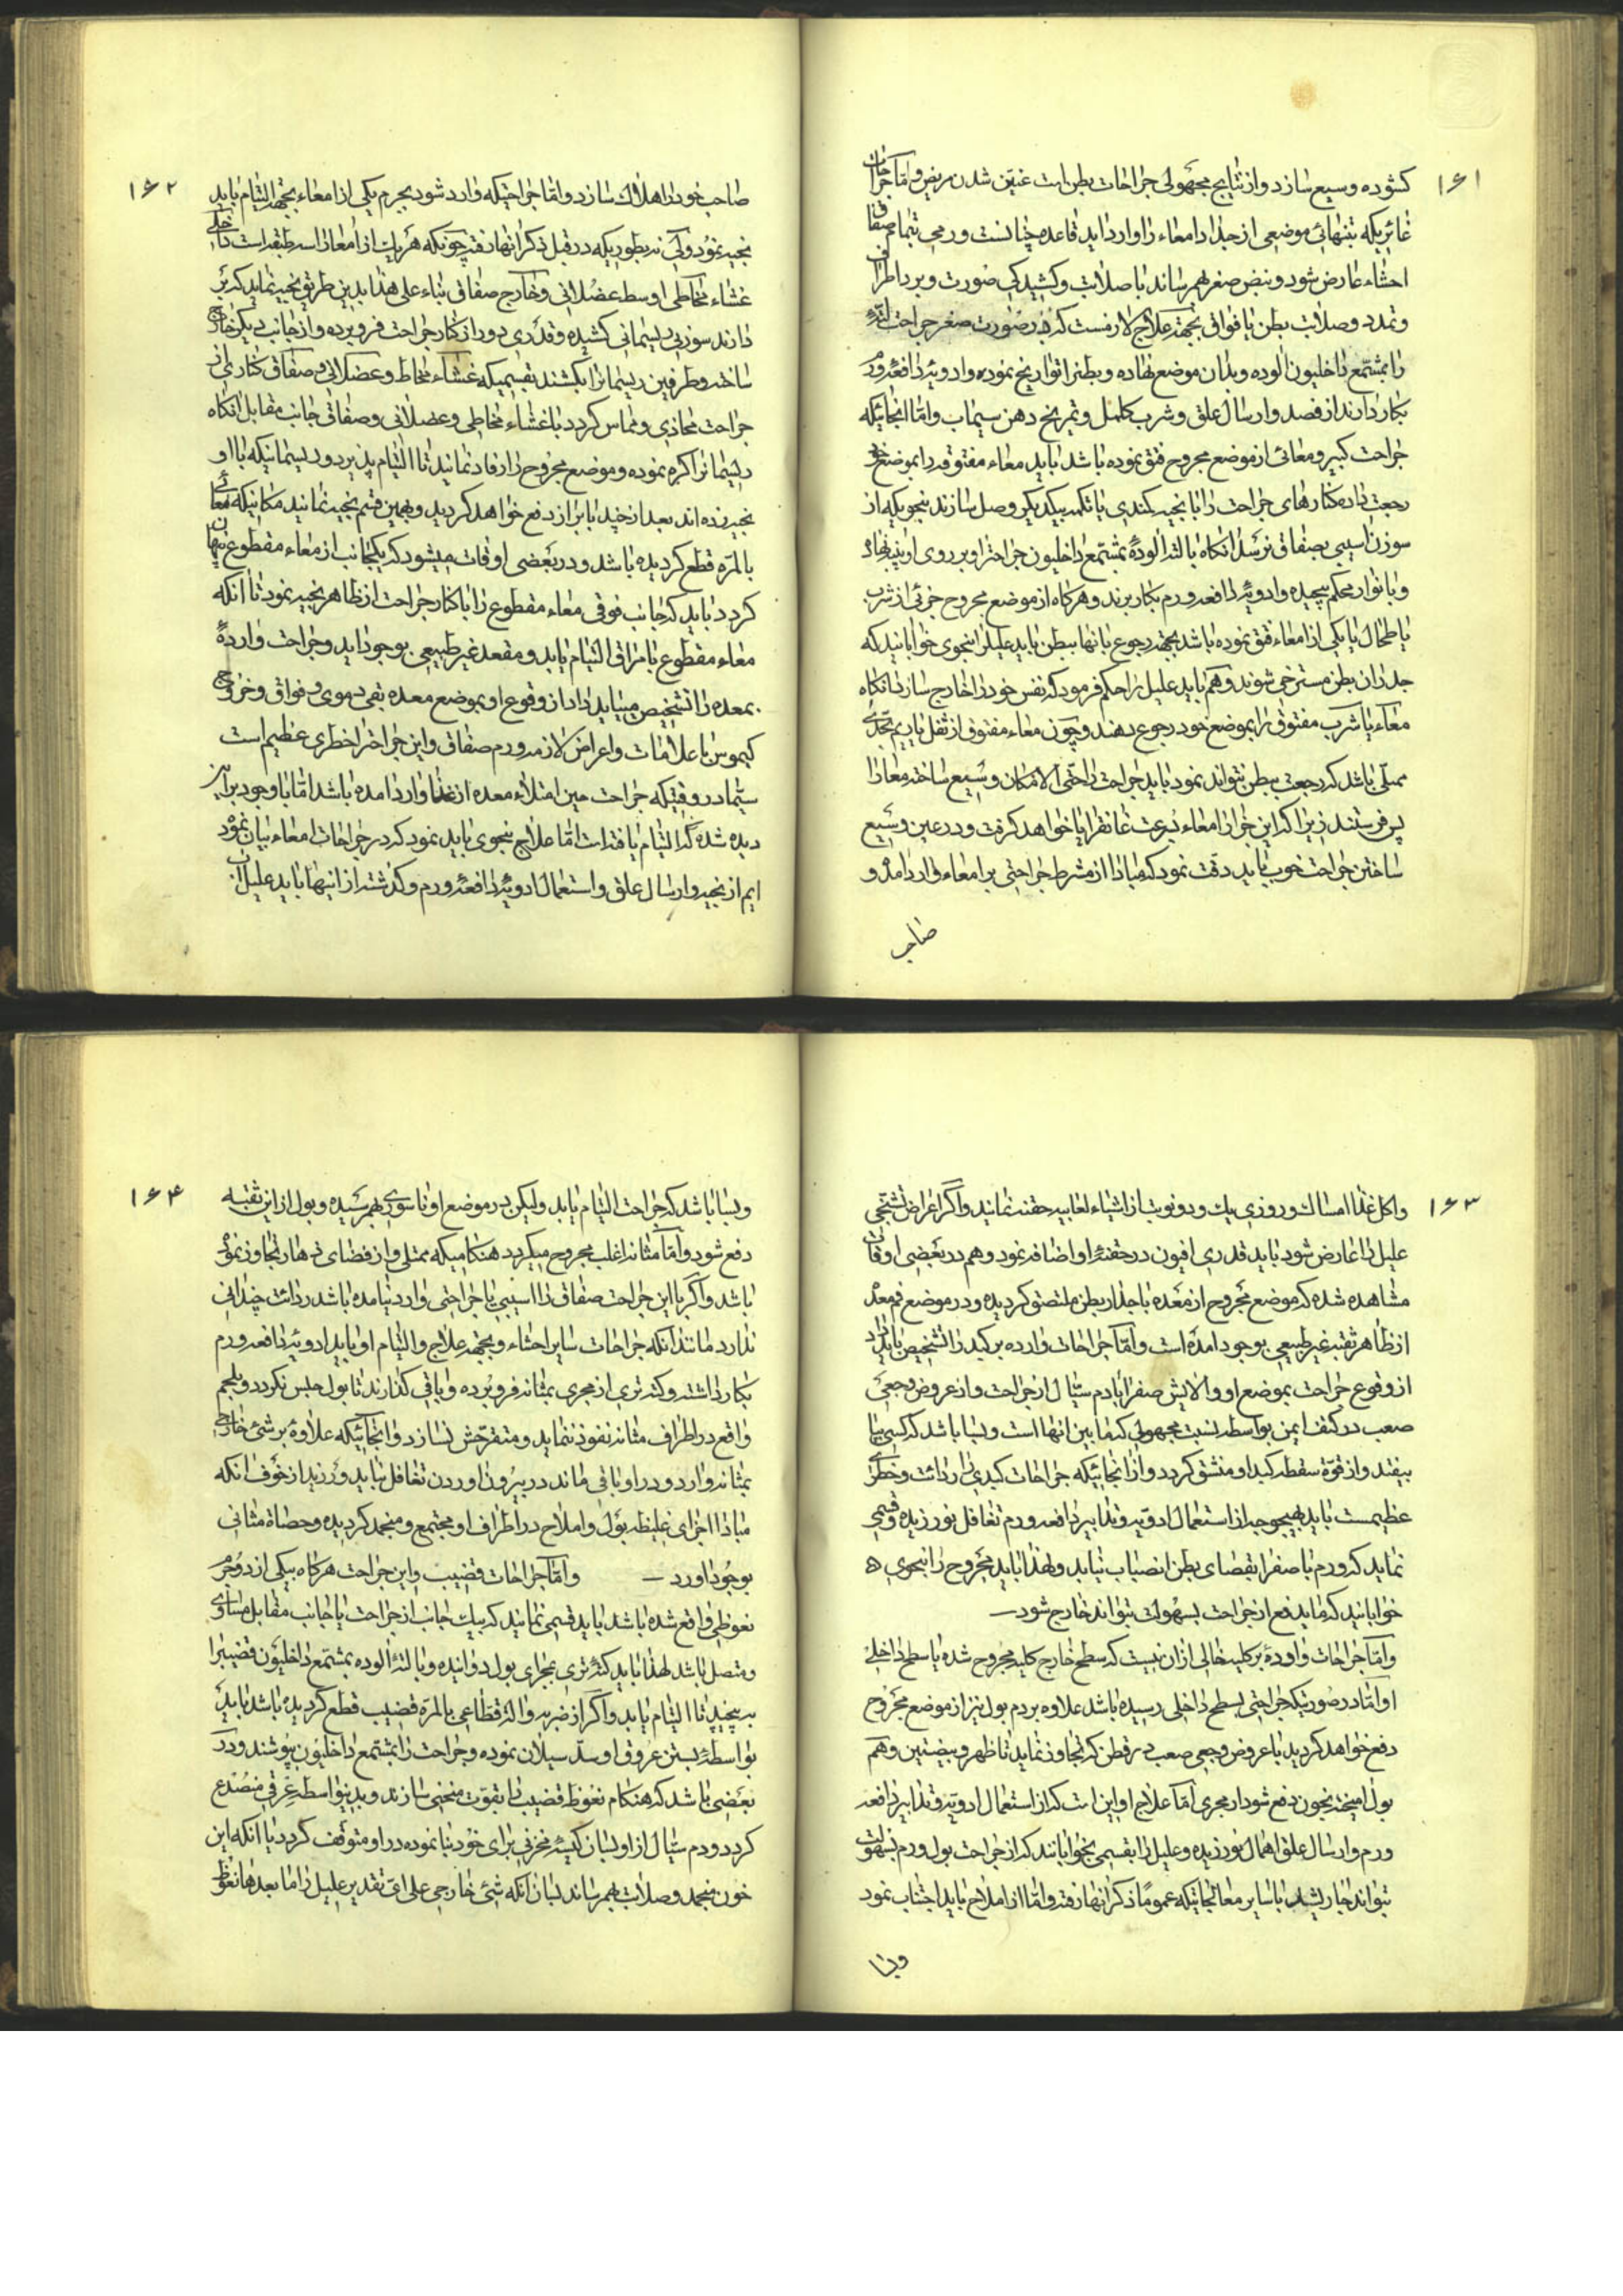 ۱۶۱
کشوده و وسیع سازد و از نتایج مجهولی جراحات بطن است غنین شدن مریض و امّا جراحات
غائریکه بتنهائی موضعی از جدار امعاء را وارد اید قاعده چنانست ورمی بتمام صفاق
احشاء عارض شود و نبض صغر بهمرساند با صلابت و کشیدکی صورت و برد اطراف
و تمدد و صلابت بطن با فواق بجهت علاج لازمست که در صورت صغر جراحت لته
را بمشمع داخلیون الوده و بدان موضع نهاده و بطنرا نواریخ نموده و ادویهٔ دافعهٔ ورم
بکار دارند از فصد و ارسال علق و شرب کلمل و تمریخ دهن سیماب و امّا انجائیکه
جراحت کبیر و معائی از موضع مجروح فتق نموده باشد باید معاء مفتوقه را بموضع خود
رجعت داده کنارهای جراحت را با بخیه بکندی یا تکمه بیکدیکر وصل سازند بنحویکه از
سوزن اسیبی بصفاق نرسد انکاه با لتهٔ الودهٔ بمشمع داخلیون جراحترا و بر روی او پنبه نهاده
و با نوار محکم پیچیده و ادویهٔ دافعه ورم بکار برند و هرکاه از موضع مجروح جزئی از شرب
یا طحال یا یکی از امعاء فتق نموده باشد بجهت رجوع بانها ببطن باید علیلرا بنحوی خوابانید که
جدران بطن مسترخی شوند و هم باید علیل را حکم فرمود که نفس خود را خارج سازد انکاه
معاء یا شرب مفتوق را بموضع خود رجوع دهند و چون معاء مفتوق از ثفل یا ریم بحدّی
ممتلی باشد که رجعت ببطن نتواند نمود باید جراحت را حتّی الامکان وسیع ساخته معا را
پس فرستند زیرا که این جزء از امعاء بسرعت غانقرایا خواهد کرفت و در عین وسیع
ساختن جراحت خوب باید دقت نمود که مبادا از مشرط جراحتی بر امعاء وارد امده و
صاحب
۱۶۲
صاحب خود را هلاک سازد و امّا جراحتیکه وارد شود بجرم یکی از امعاء بجهت التیام باید
بخیه نمود ولی نه بطوریکه در قبل ذکر انها رفته چونکه هر یک از امعا را سه طبقه است داخلی
غشاء مخاطی اوسط عضلانی و خارج صفاق بناء علی هذا بدین طریق بخیه نماید که بر
دارند سوزنی ریسمانی کشیده و قدری دور از کنار جراحت فرو برده و از جانب دیکر خارج
ساخته و طرفین ریسمانرا بکشند بقسمیکه غشاء مخاط و عضلانی و صفاق کناری از
جراحت محاذی و مماس کردد با غشاء مخاطی و عضلانی و صفاق جانب مقابل انکاه
ریسمانرا کره نموده و موضع مجروح را رفاد نمانید تا التیام پذیرد و ریسمانیکه با او
بخیه زده اند بعد از چند با براز دفع خواهد کردید و بهمین قسم بخیه نمانید مکانیکه معائی
بالمرّه قطع کردیده باشد و در بعضی اوقات میشود که یکجانب از معاء مقطوع پنهان
کردد باید که جانب فوقی معاء مقطوع را با کنار جراحت از ظاهر بخیه نمود تا انکه
معاء مقطوع با مراق التیام یابد و مقعد غیر طبیعی بوجود اید و جراحت واردهٔ
بمعده را تشخیص میباید داد از وقوع او بموضع معده بقی دموی و فواق و خروج
کیموس با علامات و اعراض لازمه ورم صفاق و این جراحترا خطری عظیم است
سیّما در وقتیکه جراحت حین امتلاء معده از غذا وارد امده باشد امّا با وجود براین
دیده شده که التیام یافته است امّا علاج بنحوی باید نمود که در جراحات امعاء بیان نموده
ایم از بخیه و ارسال علق و استعمال ادویهٔ دافعهٔ ورم و کذشته از اینها باید علیل از
۱۶۳
و اکل غذا امساک و روزی یک و دو نوبت از اشیاء لعابیه حقنه نمانید و اکر اعراض تشنّجی
علیل را عارض شود باید قدری افیون در حقنهٔ او اضافه نمود و هم در بعضی اوقات
مشاهده شده که موضع مجروح از معده با جدار بطن ملتصق کردیده و در موضع فم معده
از ظاهر ثقبه غیر طبیعی بوجود امده است و امّا جراحات وارده بر کبد را تشخیص باید داد
از وقوع جراحت بموضع او و الایش صفرا با دم سیال از جراحت و از عروض وجعی
صعب در کتف ایمن بواسطه نسبت مجهولی که مابین انها است و بسا باشد که کسی بیا
بیفتد و از قوّة سقطه کبد او منشق کردد و از انجائیکه جراحات کبدی را ردائت و خطرای
عظیمست باید بهیچوجه از استعمال ادویه و تدابیر دافعه ورم تغافل نورزیده و قسمی
نماید که ورم با صفرا بفضای بطن انصباب نیابد و لهذا باید مجروح را بنحوی
خوابانید که ماید فع از جراحت بسهولت بتواند خارج شود
و امّا جراحات واردهٔ بر کلیه خالی ازان نیست که سطح خارج کلیه مجروح شده یا سطح داخلی
او امّا در صورتیکه جراحتی بسطح داخلی رسیده باشد علاوه بر دم بول نیز از موضع مجروح
دفع خواهد کردید با عروض وجعی صعب در قطن که تجاوز نماید تا ظهر و بیضتین و هم
بول امیخته بخون دفع شود از مجری امّا علاج او این است که از استعمال ادویه و تدابیر دافعه
ورم و ارسال علق اهمال نورزیده و علیل را بقسمی بخوابانند که از جراحت بول و ورم بسهولت
بتواند خارج شد با سایر معالجاتیکه عموماً ذکر انها رفته و امّا از املاح باید اجتناب نمود
و بسا
۱۶۴
و بسا باشد که جراحت التیام یابد ولیکن در موضع او ناسوری بهمرسیده و بول از این ثقبه
دفع شود و امّا مثانه اغلب مجروح میکردد هنکامیکه ممتلی و از فضای زهار تجاوز نموده
باشد و اکر با این جراحت صفاق را اسیبی یا جراحتی وارد نیامده باشد ردائت چندانی
ندارد مانند انکه جراحات سایر احشاء و بجهت علاج و التیام او باید ادویهٔ دافعه ورم
بکار داشته و کنه تری از مجری بمثانه فرو برده و باقی کذارند تا بول حبس نکردد و بلحم
واقع در اطراف مثانه نفوذ ننماید و متقرّحش نسازد و انجائیکه علاوهٔ بر شئ خارجی
بمثانه وارد و در او باقی ماند در بیرون اوردن تغافل نباید ورزید از خوف انکه
مبادا اجزای غلیظه بول و املاح در اطراف او مجتمع و منجمد کردیده و حصاة مثانی
بوجود اورد — و امّا جراحات قضیب و این جراحت هرکاه بیکی از دو جرم
نعوظی واقع شده باشد باید قسمی نمانید که بیک جانب از جراحت با جانب مقابل مساوی
و متصل باشد لهذا باید کنه تری بمجرای بول دوانیده و با لتهٔ الوده بمشمع داخلیون قضیبرا
به پیچید تا التیام یابد و اکر از ضربه و الهٔ قطّاعی بالمرّة قضیب قطع کردیده باشد باید
بواسطهٔ بستن عروق او سدّ سیلان نموده و جراحت را بمشمع داخلیون بپوشند و در
بعضی باشد که هنکام نعوظ قضیب را بقوّت منحنی سازند و بدینواسطه عرقی منصدع
کردد و دم سیال از او بسان کیسهٔ مخزنی برای خود بنا نموده در او متوقف کردد یا انکه این
خون منجمد و صلابت بهمرساند بسان انکه شئ خارجی علی ایّ تقدیر علیل را ما بعدها نعوظ